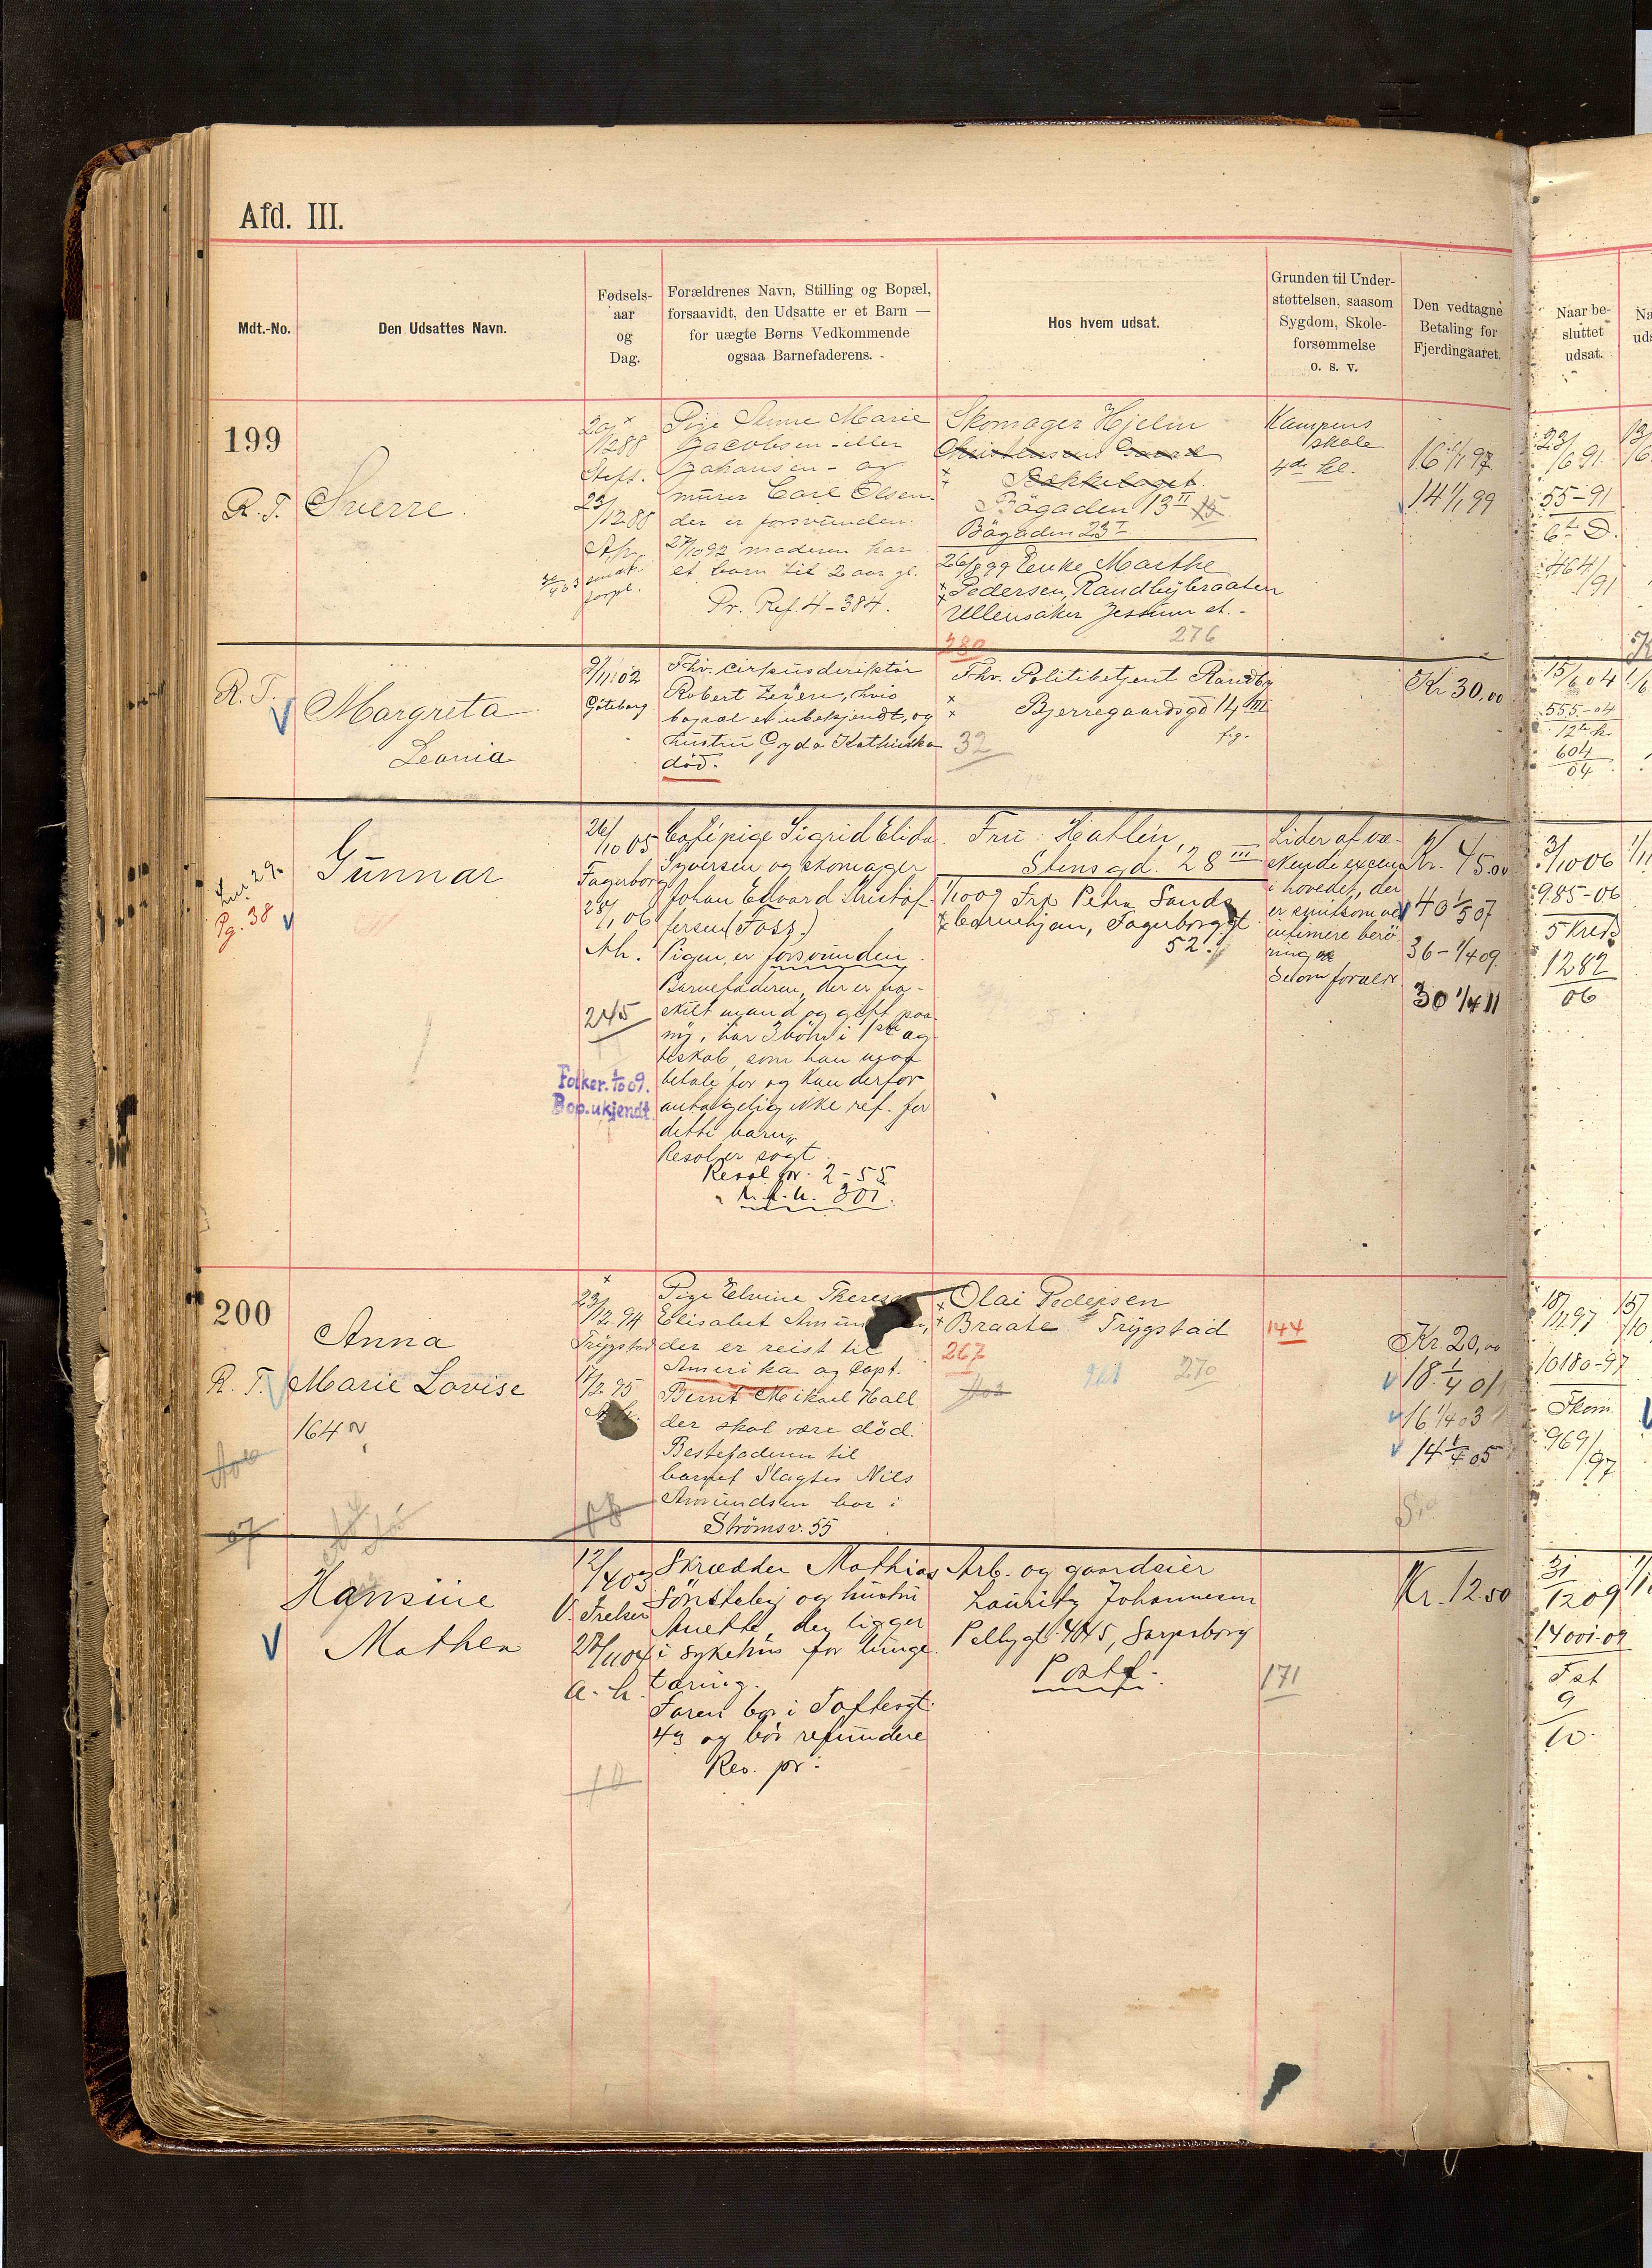 Afd. III.
Mdt.-No.
Den Udsattes Navn.
Fødsels-
aar
og
Dag.
Forældrenes Navn, Stilling og Bopæl,
forsaavidt, den Udsatte er et Barn —
for uægte Børns Vedkommende
ogsaa Barnefaderens.
Hos hvem udsat.
Grunden til Under-
støttelsen, saasom
Sygdom, Skole-
forsømmelse
o. s. v.
Den vedtagne
Betaling for
Fjerdingaaret.
Naar be-
sluttet
udsat.
199
R. T. Sverre
20/1288
23/1288
Pige Anne Marie
Jacobsen - eller
Johansen - og
murer Carl Olsen
der er forsvunden.
27/1092 moderen har
et barn til 2 aar gl.
Pr. Ref. 4-384.
Skomager Hjelm
Bögaden 13 II
Bögaden 23 I
26/8 99 Enke Marthe
Pedersen, Randbybraaten
Ullensaker Jessum st. -
280
276
Kampens
skole
4de kl.
16 1/1 97
14 1/1 99
23/6 91
55-91
6te D.
464/91
R. T.
Margreta
Leonia
9/11 02
Göteborg
Fhv. cirkusderiktör
Robert, hvis
bopæl er ubekjendt, og
hustru Gyda Kathinka
död.
Fhv. Politibetjent Randby
Bjerregaardsgd 14 III
f.g.
32
Kr 30,00
15/6 04
555-04
12te k.
604
04
Gunnar
Pg. 38
26/10 05
Fagerborg
28/1 06
Ah.
245
Folker. 1/10 09.
Bop. ukjendt
Cafépige Sigrid Elida
Syversen og skomager
Johan Edvard Kristof-
fersen (Foss.)
Pigen, er forsvunden
Barnefaderen, der er fra-
skilt mand og gift paa
ny, har 3 börn i 1ste æg-
teskab, som han maa
betale for og kan derfor
antagelig ikke ref. for
dette barn.
Resol. er sögt.
Resol. for. 2-55
301.
Fru Hatlen,
Stensgd. 28 III
1/10 09 Frk Petra Sands
barnehjem, Fagerborggt
52.
Lider af væ-
skende exem
i hovedet, der
er smitsom ved
intimere berö-
ring
Kr. 45.00
40 1/5 07
36 - 1/4 09
30 1/4 11
3/10 06
985-06
5 Kred.
1282
06
200
Anna
R. T. Marie Lovise
164
23/12.94
Trygstad
17/2.95
Pige Elvine Therese
Elisabet
der er reist til
Amerika og Capt.
Bernt Mikael Hall
der skal være död.
Bestefaderen til
barnet Slagter Nils
Amundsen bor i
Strömsv. 55
Olai Pedersen
Braate Trygstad
267
270
144
Kr. 20,00
18. 1/4 01
16 1/4 03
14 1/4 05
18/11 97
10180-97
Thom.
969/97
07
Hansine
Mathea
12/4 03
V. Frelser
28/11 04
a. h.
10
Skrædder Mathias
Sönsteby og hustru
Anette, der ligger
i sykehus for lunge-
tæring.
Faren bor i Toftesgt.
43 og bör refundere
Res. pr.
Arb. og gaardeier
Lauritz Johannesen
Pellygt. 4045, Sarpsborg
Postf.
171
Kr. 12.50
31/12 09
14001-09
Fat
9
10.